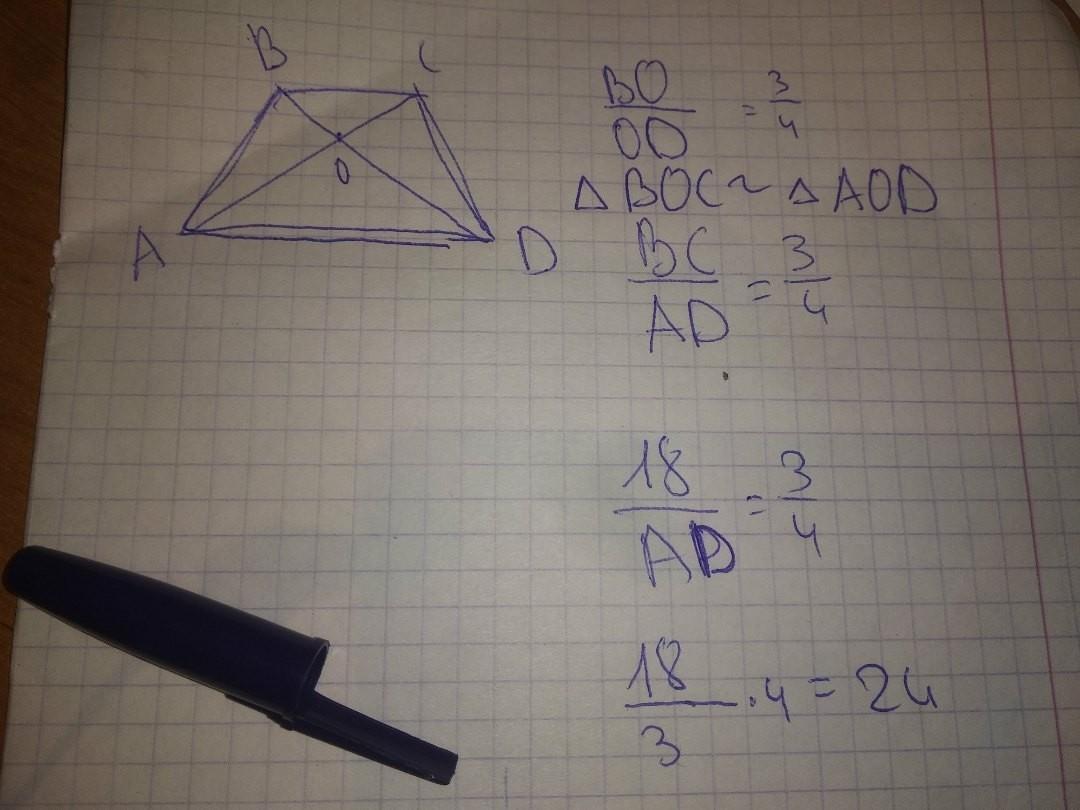 B C
O
A D
BO/OD = 3/4
△ BOC ~ △ AOD
BC/AD = 3/4
18/AD = 3/4
18/3 · 4 = 24